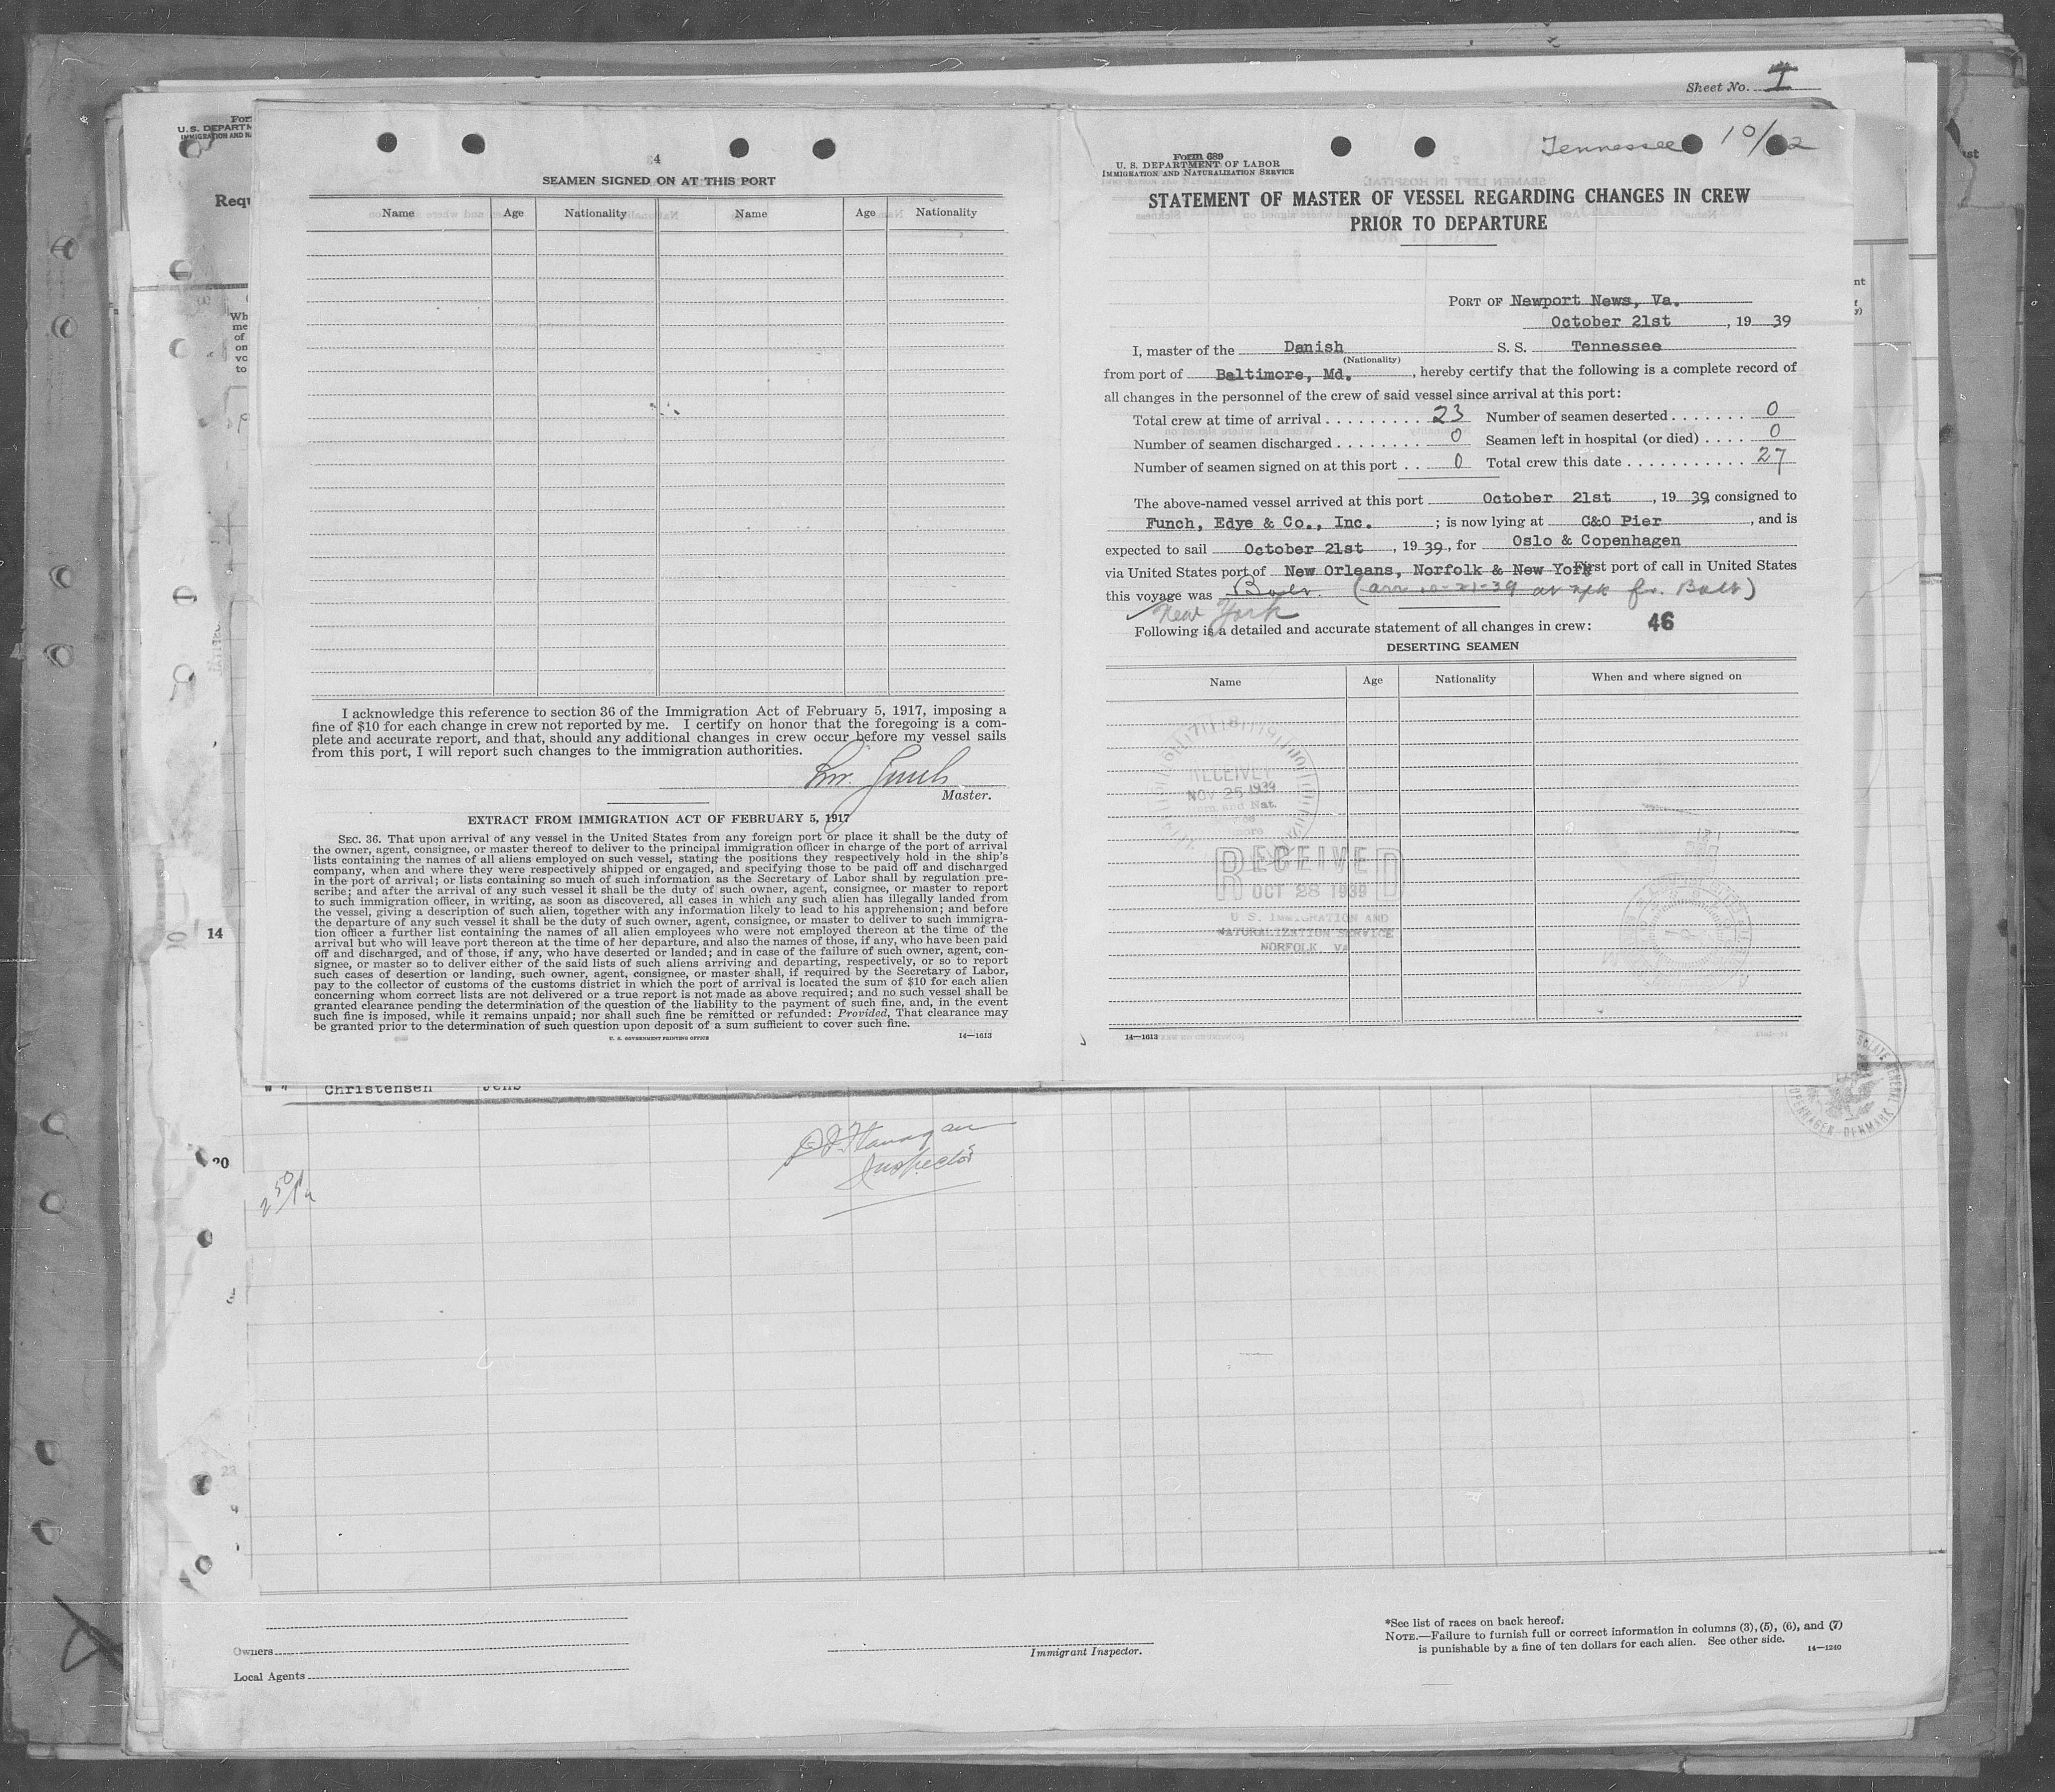 Sheet No. I
For
U. S. DEPARTM
IMMIGRATION AND N
Requ
Wh
me
of
on
vo
to
14
20
4
SEAMEN SIGNED ON AT THIS PORT
Name Age Nationality Name Age Nationality
I acknowledge this reference to section 36 of the Immigration Act of February 5, 1917, imposing a
fine of $10 for each change in crew not reported by me. I certify on honor that the foregoing is a com-
plete and accurate report, and that, should any additional changes in crew occur before my vessel sails
from this port, I will report such changes to the immigration authorities.
Master.
EXTRACT FROM IMMIGRATION ACT OF FEBRUARY 5, 1917
SEC. 36. That upon arrival of any vessel in the United States from any foreign port or place it shall be the duty of
the owner, agent, consignee, or master thereof to deliver to the principal immigration officer in charge of the port of arrival
lists containing the names of all aliens employed on such vessel, stating the positions they respectively hold in the ship's
company, when and where they were respectively shipped or engaged, and specifying those to be paid off and discharged
in the port of arrival; or lists containing so much of such information as the Secretary of Labor shall by regulation pre-
scribe; and after the arrival of any such vessel it shall be the duty of such owner, agent, consignee, or master to report
to such immigration officer, in writing, as soon as discovered, all cases in which any such alien has illegally landed from
the vessel, giving a description of such alien, together with any information likely to lead to his apprehension; and before
the departure of any such vessel it shall be the duty of such owner, agent, consignee, or master to deliver to such immigra-
tion officer a further list containing the names of all alien employees who were not employed thereon at the time of the
arrival but who will leave port thereon at the time of her departure, and also the names of those, if any, who have been paid
off and discharged, and of those, if any, who have deserted or landed; and in case of the failure of such owner, agent, con-
signee, or master so to deliver either of the said lists of such aliens arriving and departing, respectively, or so to report
such cases of desertion or landing, such owner, agent, consignee, or master shall, if required by the Secretary of Labor,
pay to the collector of customs of the customs district in which the port of arrival is located the sum of $10 for each alien
concerning whom correct lists are not delivered or a true report is not made as above required; and no such vessel shall be
granted clearance pending the determination of the question of the liability to the payment of such fine, and, in the event
such fine is imposed, while it remains unpaid; nor shall such fine be remitted or refunded: Provided, That clearance may
be granted prior to the determination of such question upon deposit of a sum sufficient to cover such fine.
U. S. GOVERNMENT PRINTING OFFICE 14—1613
Tennessee 10/22
Form 689
U. S. DEPARTMENT OF LABOR
IMMIGRATION AND NATURALIZATION SERVICE
STATEMENT OF MASTER OF VESSEL REGARDING CHANGES IN CREW
PRIOR TO DEPARTURE
PORT OF Newport News, Va.
October 21st, 19 39
I, master of the Danish S. S. Tennessee
(Nationality)
from port of Baltimore, Md., hereby certify that the following is a complete record of
all changes in the personnel of the crew of said vessel since arrival at this port:
Total crew at time of arrival 23 Number of seamen deserted 0
Number of seamen discharged 0 Seamen left in hospital (or died) 0
Number of seamen signed on at this port 0 Total crew this date 27
The above-named vessel arrived at this port October 21st, 19 39 consigned to
Funch, Edye & Co., Inc.; is now lying at C&O Pier, and is
expected to sail October 21st, 19 39, for Oslo & Copenhagen
via United States port of New Orleans, Norfolk & New York First port of call in United States
this voyage was Balt. (arr 10-21-39 at nfk fr. Balt)
New York
Following is a detailed and accurate statement of all changes in crew: 46
DESERTING SEAMEN
Name Age Nationality When and where signed on
RECEIVED
NOV 25 1939
and Nat.
RECEIVED
OCT 28 1939
U S. IMMIGRATION AND
NATURALIZATION SERVICE
NORFOLK, VA
14—1613
Christensen Jens
Flanagan
Inspector
COPENHAGEN, DENMARK
Owners
Local Agents
Immigrant Inspector.
*See list of races on back hereof.
NOTE.—Failure to furnish full or correct information in columns (3), (5), (6), and (7)
is punishable by a fine of ten dollars for each alien. See other side. 14—1240